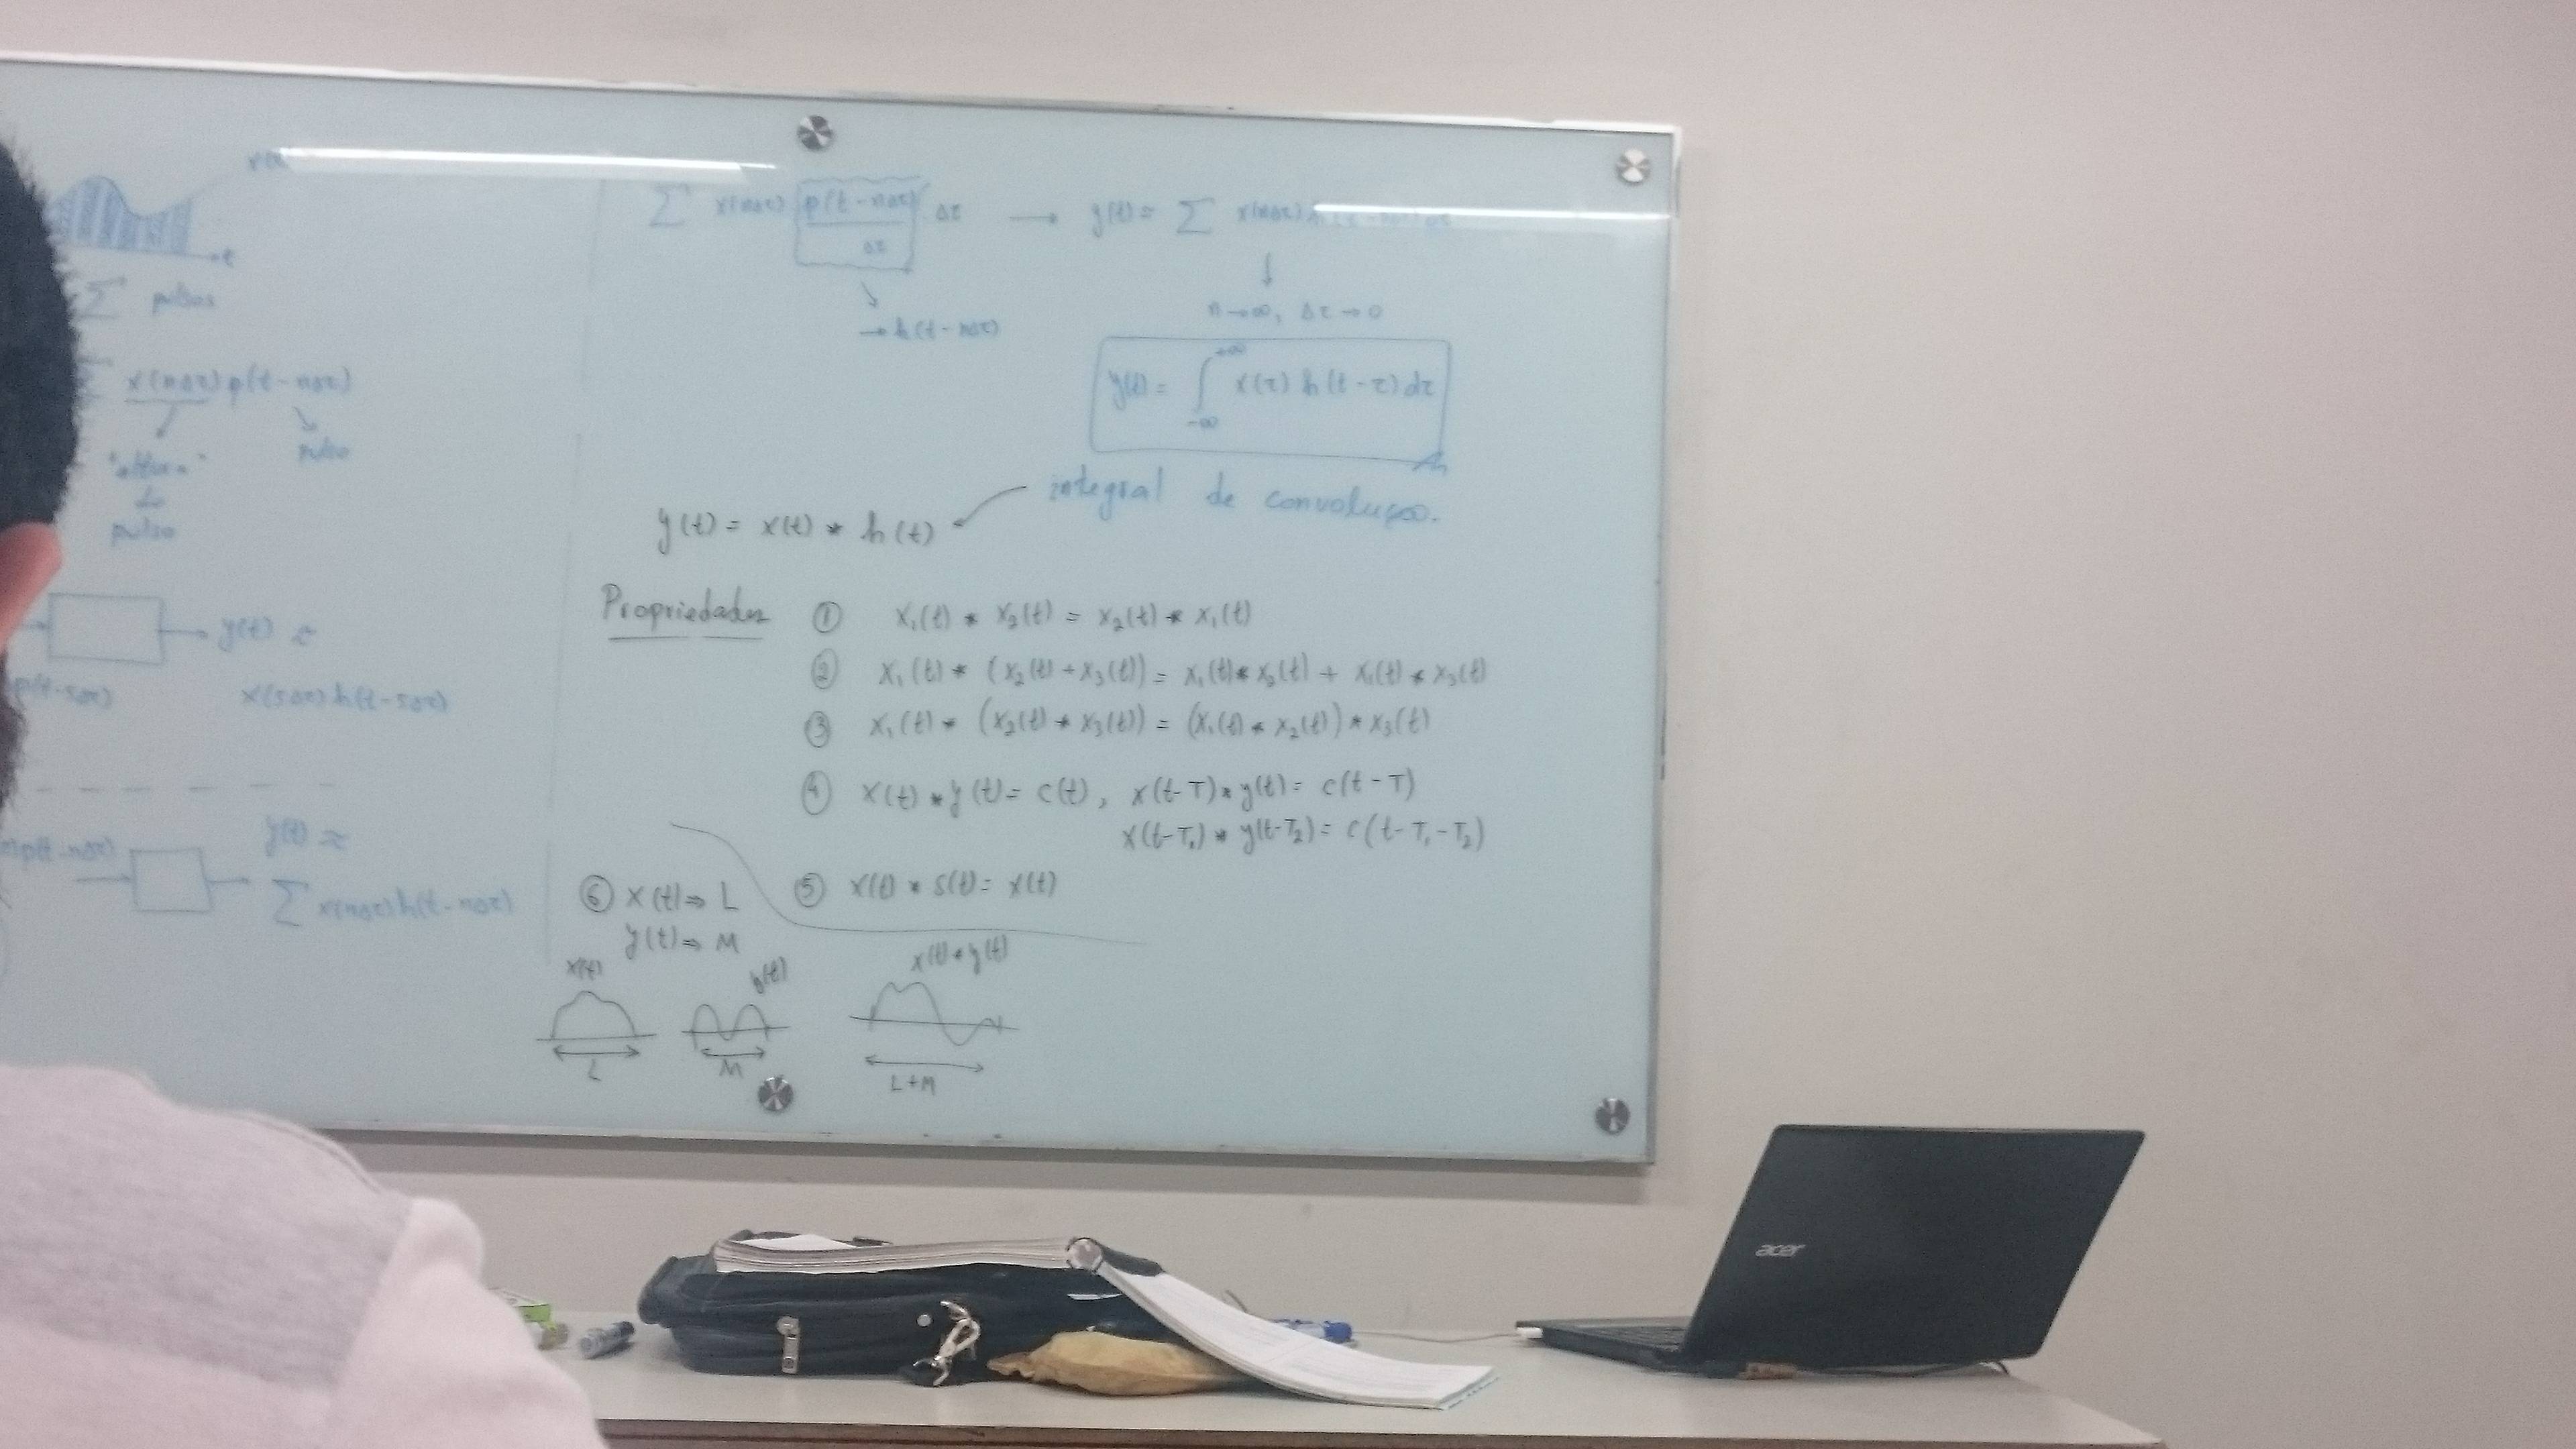 Σ pulsos
x(nΔτ) p(t-nΔτ)
pulso
"altura"
pulso
y(t) ≈
p(t-5Δτ) x(5Δτ) h(t-5Δτ)
p(t-nΔτ) y(t) ≈
Σ x(nΔτ) h(t-nΔτ)
Σ x(nΔτ) p(t-nΔτ)/Δτ Δτ → y(t) = Σ x(nΔτ) h(t-nΔτ) Δτ
→ h(t-nΔτ)
n→∞, Δτ→0
y(t) = ∫ -∞ +∞ x(τ) h(t-τ) dτ
integral de convolução.
y(t) = x(t) * h(t)
Propriedades
① x₁(t) * x₂(t) = x₂(t) * x₁(t)
② x₁(t) * (x₂(t) + x₃(t)) = x₁(t) * x₂(t) + x₁(t) * x₃(t)
③ x₁(t) * (x₂(t) * x₃(t)) = (x₁(t) * x₂(t)) * x₃(t)
④ x(t) * y(t) = c(t), x(t-T) * y(t) = c(t-T)
x(t-T₁) * y(t-T₂) = c(t-T₁-T₂)
⑤ x(t) * δ(t) = x(t)
⑥ x(t) ⇒ L
y(t) ⇒ M
x(t) y(t) x(t) * y(t)
L M L+M
acer